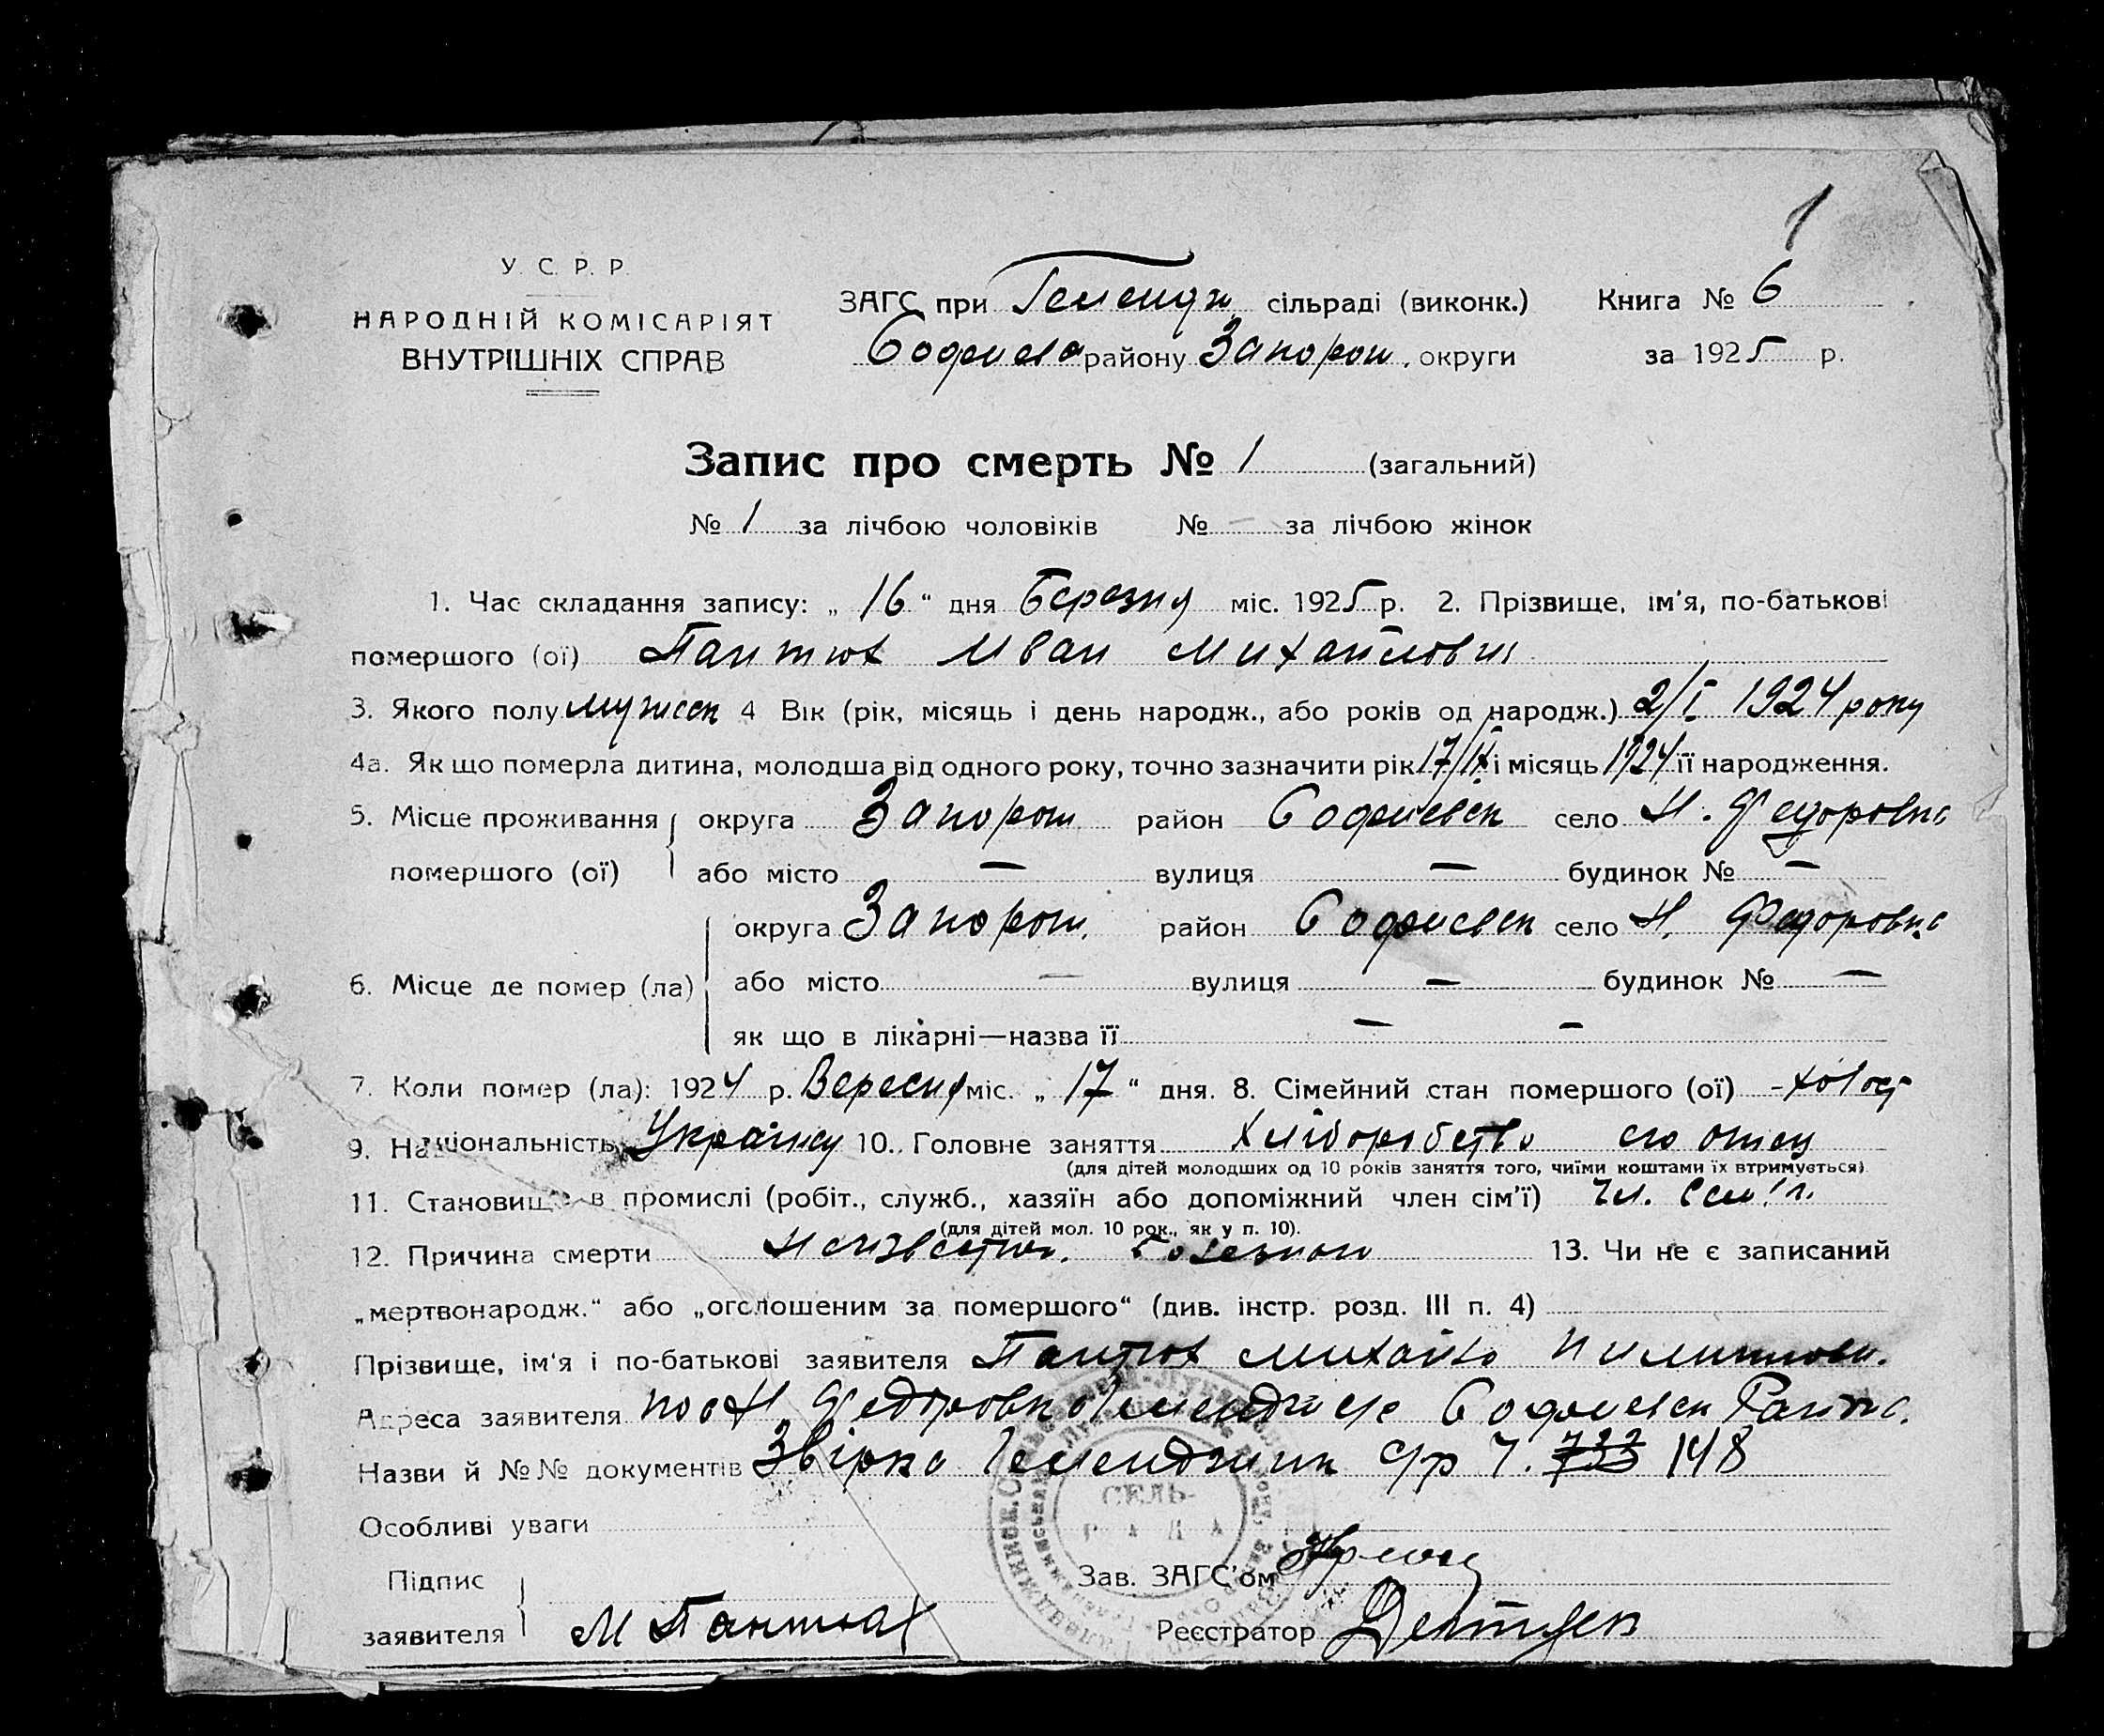 1
У. С. Р. Р.
НАРОДНІЙ КОМІСАРІЯТ
ВНУТРІШНІХ СПРАВ
ЗАГС при сільраді (виконк.) Книга № 6
району Запорож. округи за 1925 р.
Запис про смерть № 1 (загальний)
№ 1 за лічбою чоловіків № — за лічбою жінок
1. Час складання запису: „ 16 “ дня Березня міс. 1925 р. 2. Прізвище, ім'я, по-батькові
помершого (ої) Пантюх Иван Михайлович
3. Якого полу мужеск 4 Вік (рік, місяць і день народж., або років од народж.) 2/I 1924 року
4а. Як що померла дитина, молодша від одного року, точно зазначити рік 17/IX і місяць 1924 її народження.
5. Місце проживання округа Запорож. район Софиевск село Н. Федоровка
помершого (ої) або місто — вулиця — будинок № —
округа Запорож. район Софиевск село Н. Федоровка
6. Місце де помер (ла) або місто — вулиця — будинок № —
як що в лікарні—назва її — —
7. Коли помер (ла): 1924 р. Вересня міс. „ 17 “ дня. 8. Сімейний стан помершого (ої) - холост
9. Національність 10. Головне заняття Хліборобство его отец
(для дітей молодших од 10 років заняття того, чиїми коштами їх втримується)
11. Становище в промислі (робіт., служб., хазяїн або допоміжний член сім'ї) Чл. сем'ї
(для дітей мол. 10 рок., як у п. 10).
12. Причина смерти Неизвестн. болезнь 13. Чи не є записаний
„мертвонародж.“ або „оголошеним за помершого“ (див. інстр. розд. III п. 4)
Прізвище, ім'я і по-батькові заявителя Пантюх Михайло Пилипов.
Адреса заявителя Н Федоровка Софиевск
Назви й №№ документів с/р Ч. 148
Особливі уваги
СЕЛЬ-
РАДА
Підпис
заявителя М Пантюх
Зав. ЗАГС'ом
Реєстратор